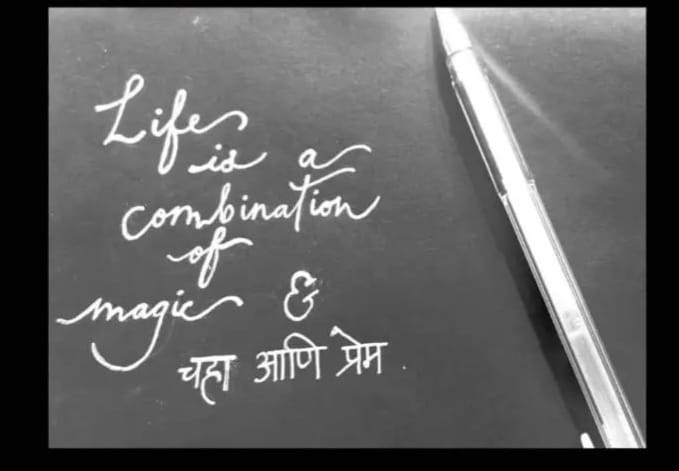 Life
is a
combination
of
magic &
चहा आणि प्रेम.